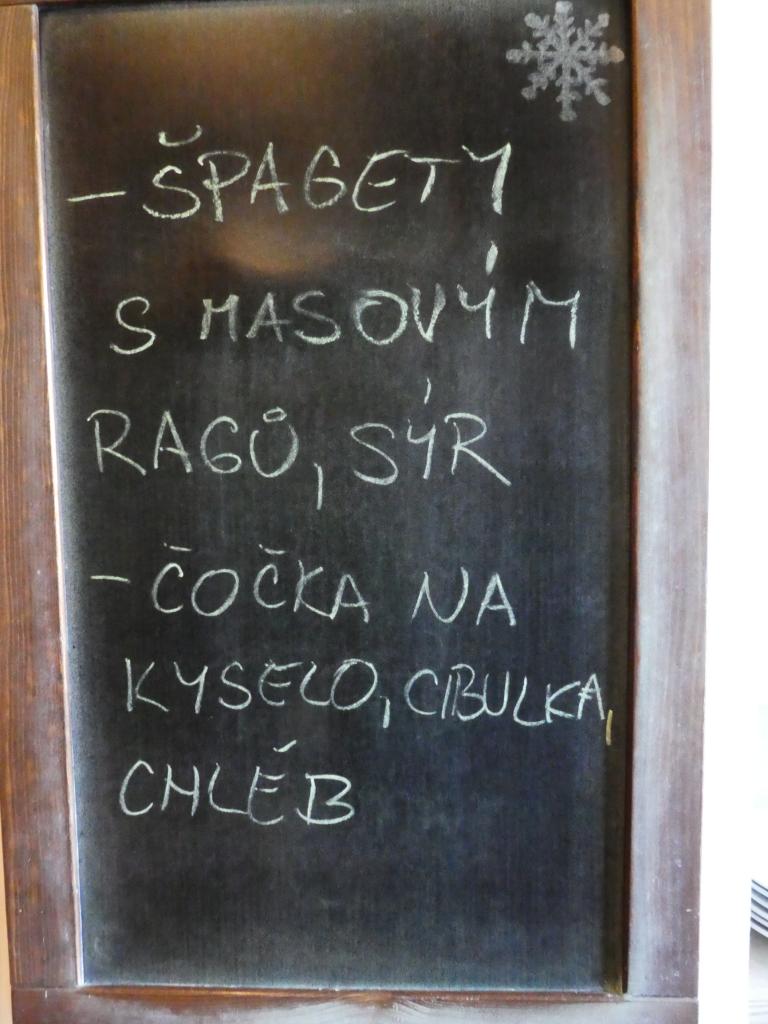 - ŠPAGETY
S MASOVÝM
RAGŮ, SÝR
- ČOČKA NA
KYSELO, CIBULKA,
CHLÉB